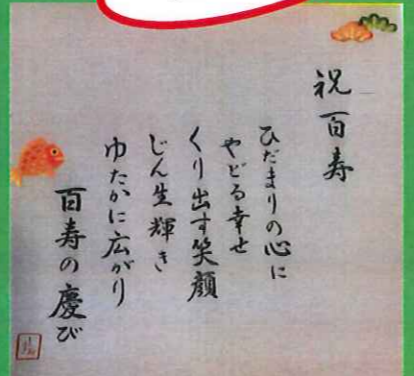 祝百寿
ひだまりの心に
やどる幸せ
くり出す笑顔
じん生輝き
ゆたかに広がり
百寿の慶び